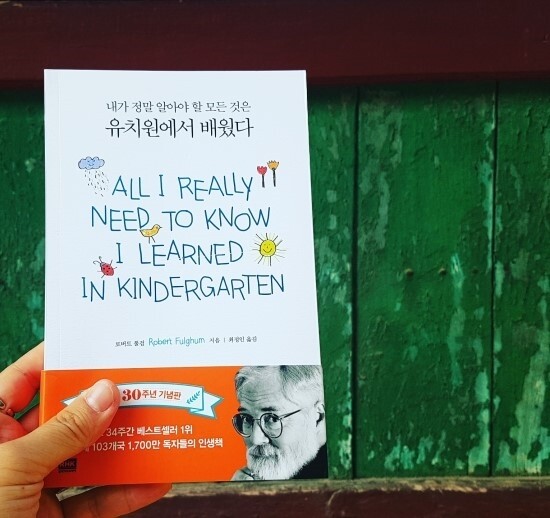 내가 정말 알아야 할 모든 것은
유치원에서 배웠다
ALL I REALLY
NEED TO KNOW
I LEARNED
IN KINDERGARTEN
로버트 풀검 Robert Fulghum 지음 | 최정인 옮김
30주년 기념판
34주간 베스트셀러 1위
103개국 1,700만 독자들의 인생책